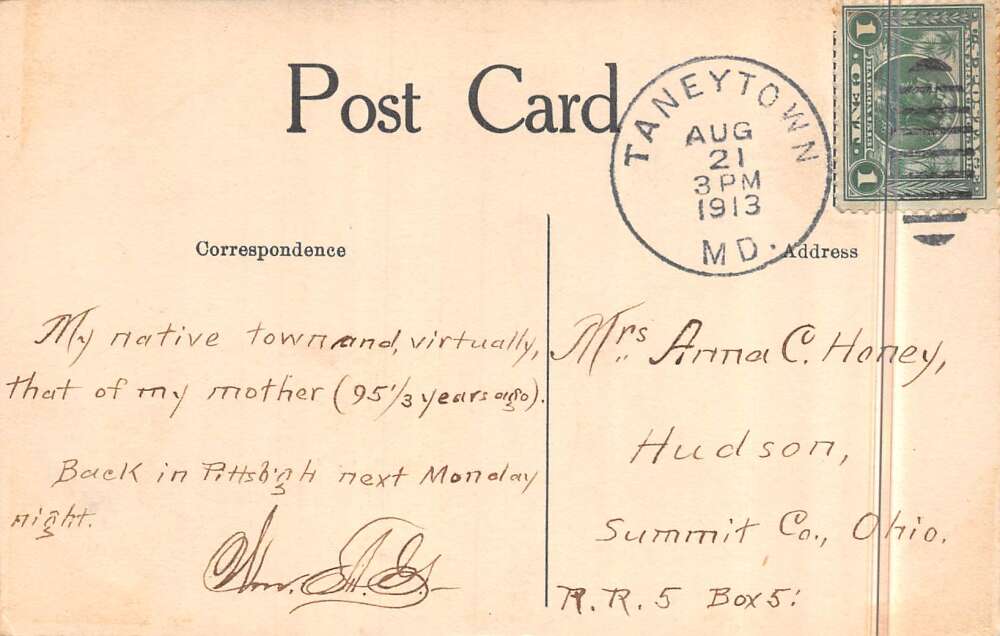 Post Card
TANEYTOWN
AUG
21
3 PM
1913
MD.
1 CENT 1
Correspondence
Address
My native town and, virtually,
that of my mother (95 1/3 years ago).
Back in Pittsb'gh next Monday
night.
Wm.
Mrs Anna C. Honey,
Hudson,
Summit Co., Ohio.
R. R. 5 Box 5.